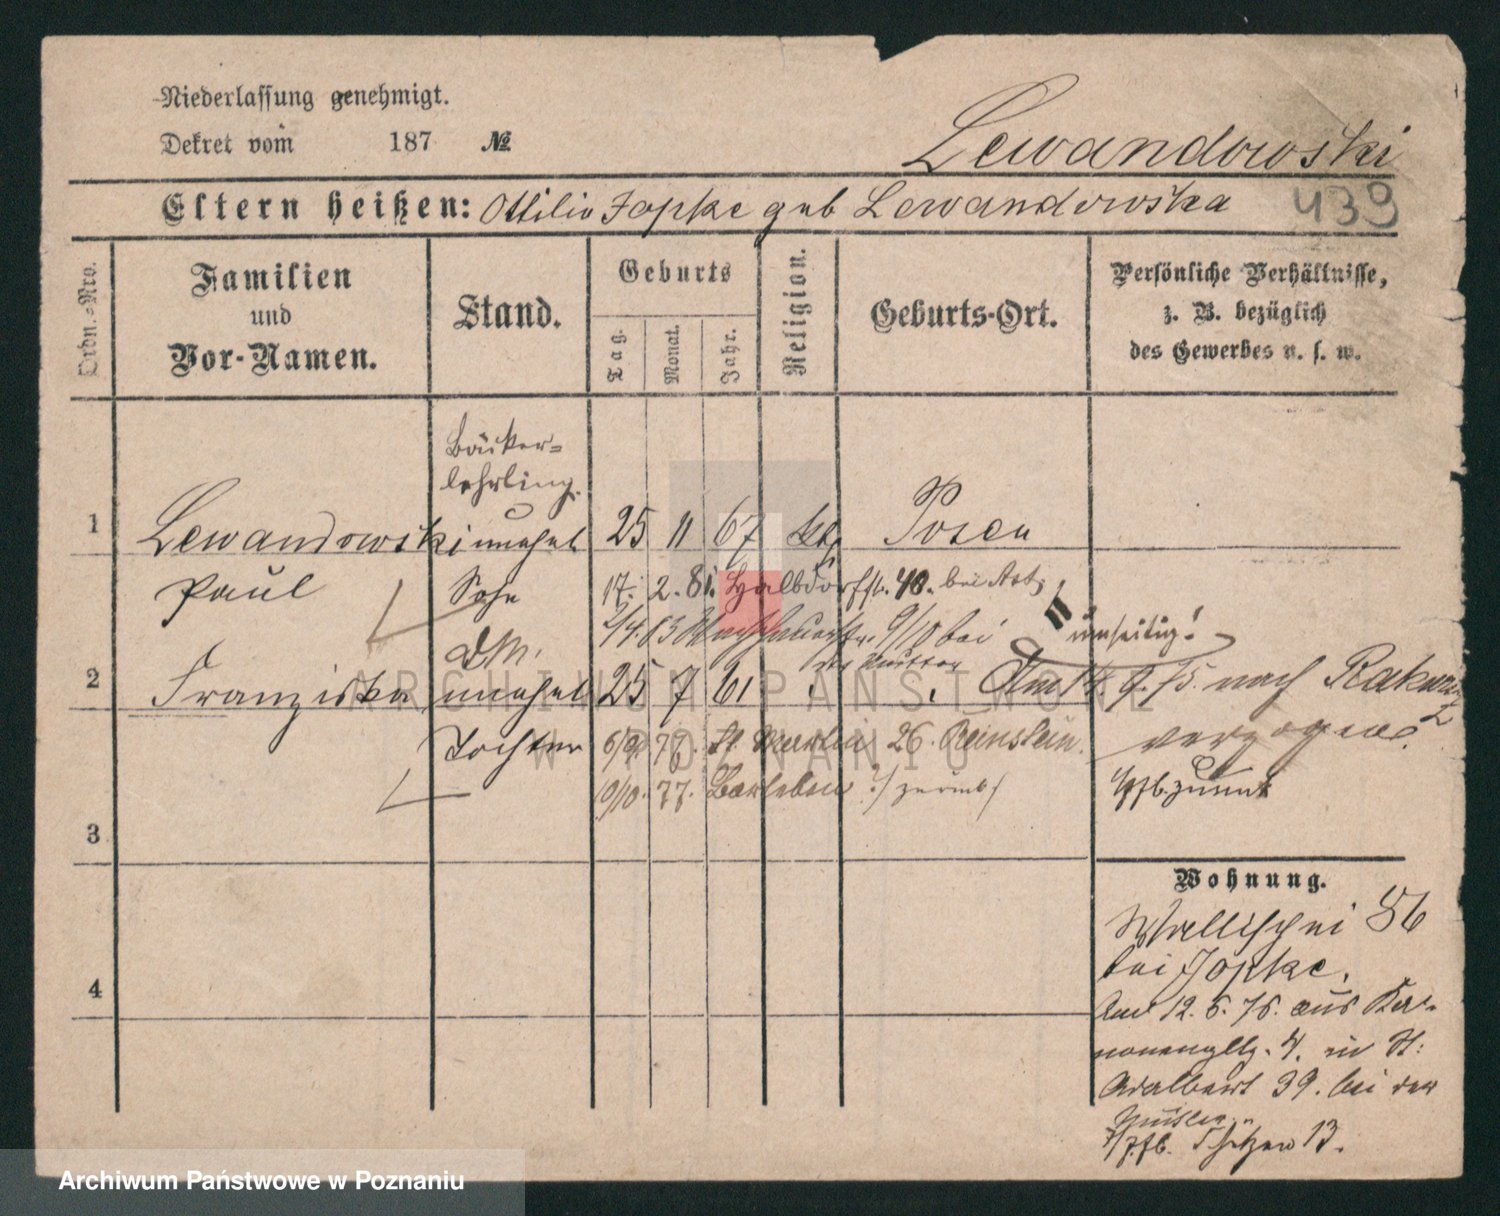 Niederlassung genehmigt.
Dekret vom 187 №
Lewandowski
Eltern heißen: Ottilie Jopke geb Lewandowska
439
Ordn.-Nro.
Familien
und
Vor-Namen.
Stand.
Geburts
Tag.
Monat.
Jahr.
Religion.
Geburts-Ort.
Persönliche Verhältnisse,
z. B. bezüglich
des Gewerbes u. s. w.
Bäcker=
lehrling.
1 Lewandowski unehel 25 11 67 kth Posen
Paul Sohn 17. 2. 81. Halbdorfstr. 40. bei
2/4. 83 9/10 bei
der Mutter
umseitig!
2 Franziska unehel 25 7 61
Am 14. 9. 75. nach
verzogen.
Tochter 6/9. 77. St. Martin 26. Reinstein.
9/10. 77. zurück
3
Wohnung.
Wallischei 56
bei Jopke.
4
Am 12. 6. 76. aus
4. in St.
Adalbert 39. bei der
Mutter
13.
ARCHIWUM PAŃSTWOWE
W POZNANIU
Archiwum Państwowe w Poznaniu